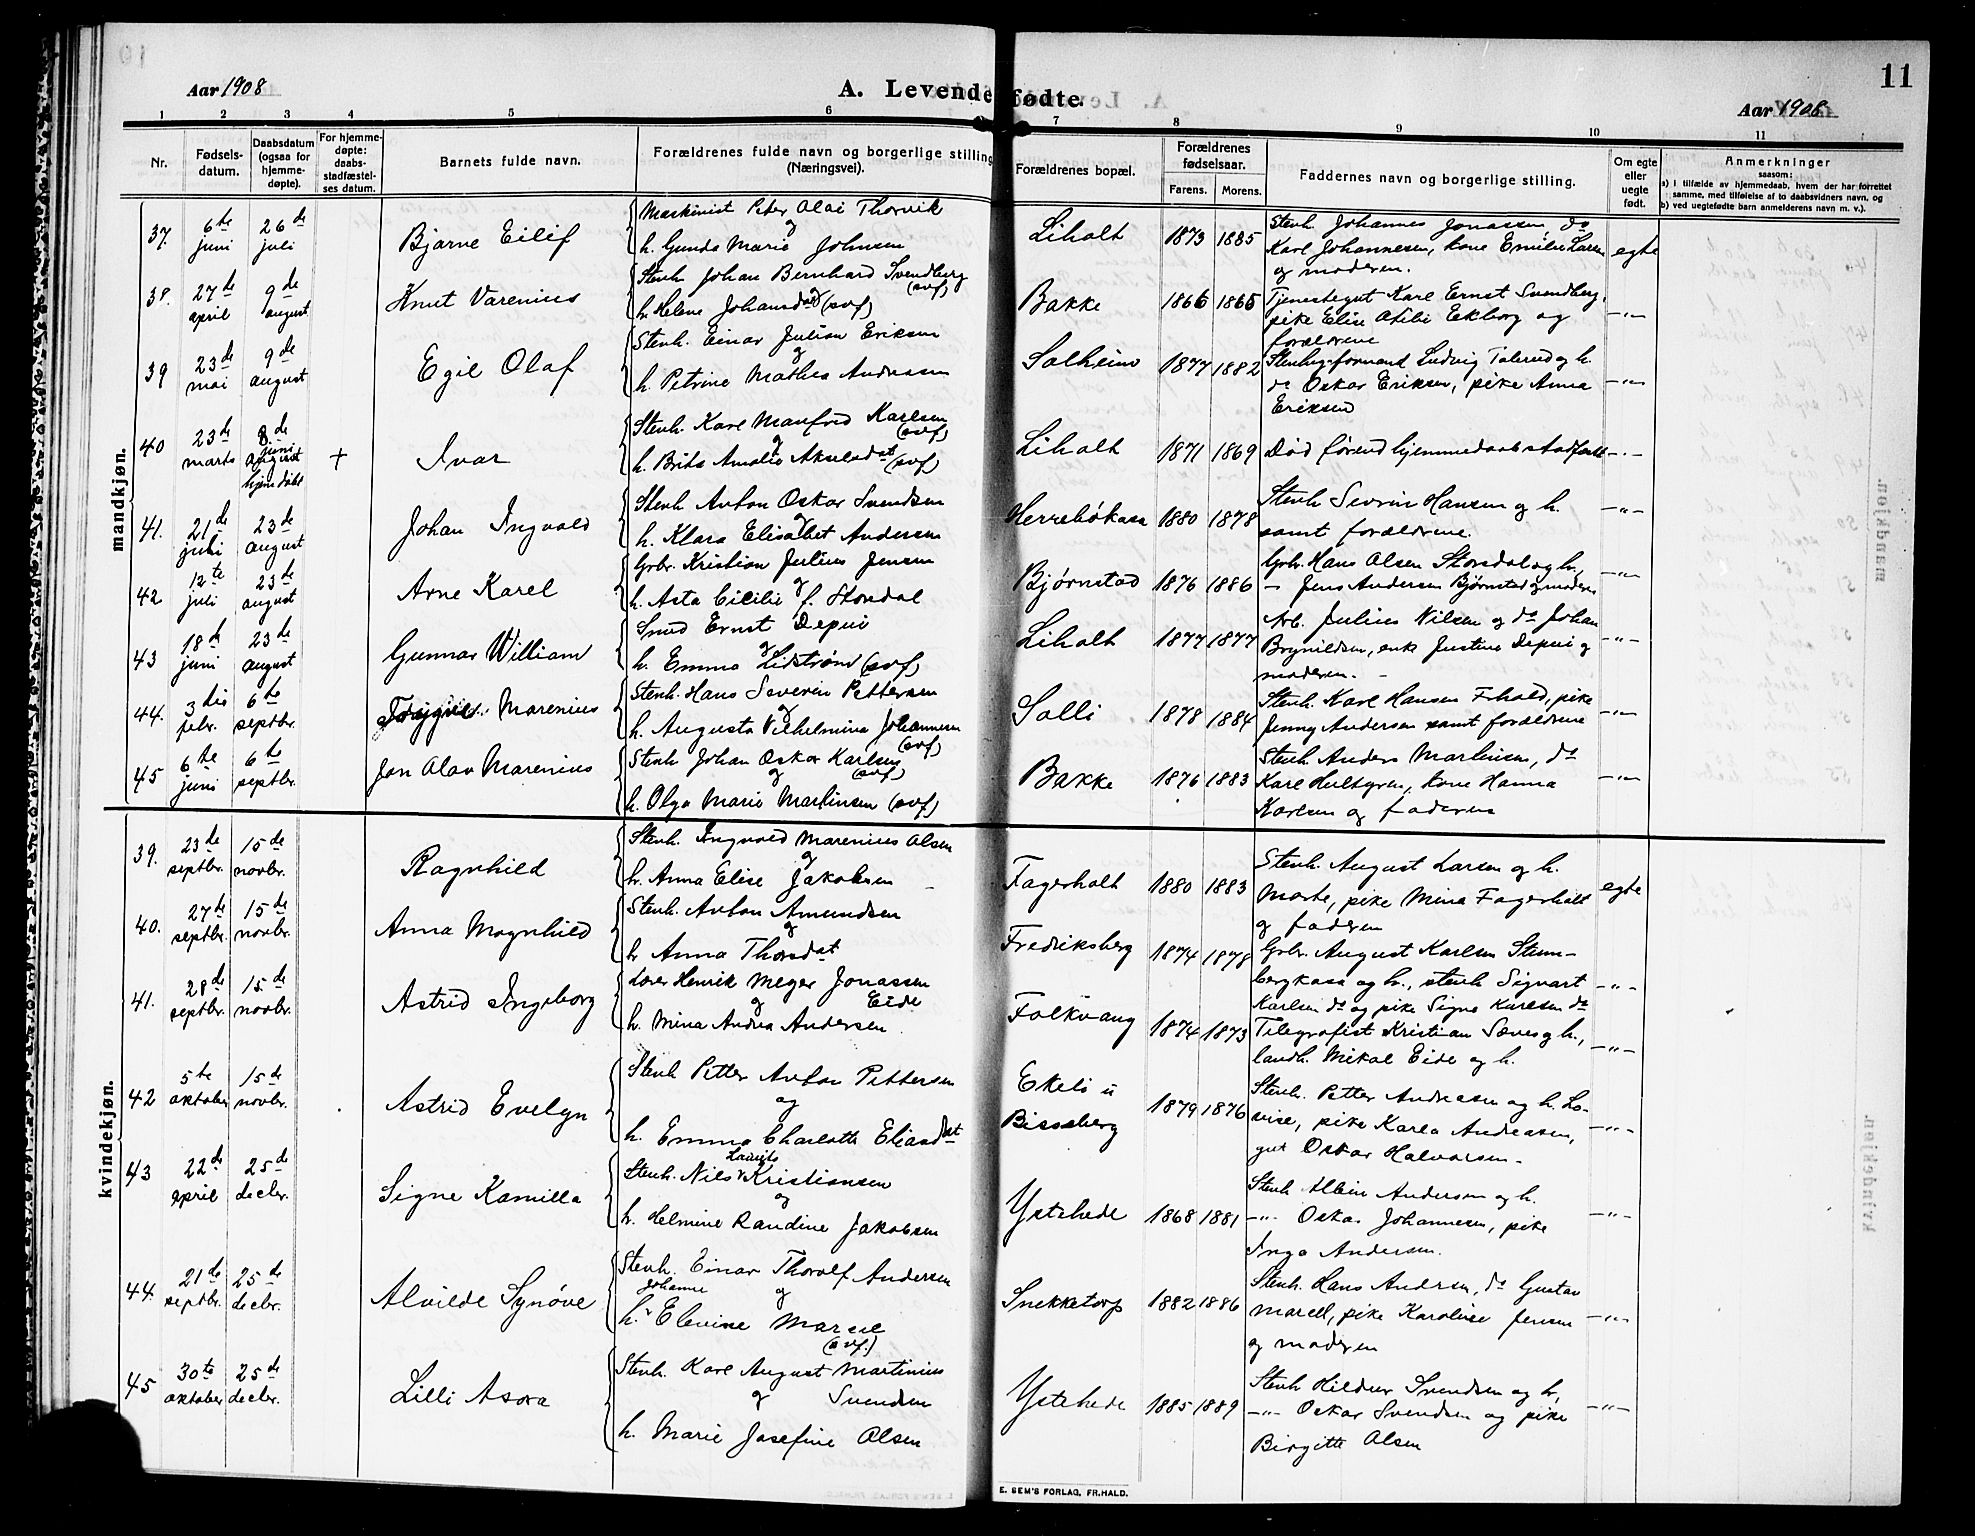 Aar 1908
A. Levendefødte.
Aar 1908
11
1 2 3 4 5 6 7 8 9 10 11
Nr.
Fødsels-
datum.
Daabsdatum
(ogsaa for
hjemme-
døpte).
For hjemme-
døpte:
daabs-
stadfæstel-
ses datum.
Barnets fulde navn.
Forældrenes fulde navn og borgerlige stilling
(Næringsvei).
Forældrenes bopæl.
Forældrenes
fødselsaar.
Farens. Morens.
Faddernes navn og borgerlige stilling.
Om egte
eller
uegte
født.
Anmerkninger
saasom:
a) I tilfælde av hjemmedaab, hvem der har forrettet
samme, med tilføielse af to daabsvidners navn, og
b) ved uegtefødte barn anmelderens navn m. v.).
mandkjøn.
37. 6te juni 26de juli
Bjarne Eilif
Maskinist Peter Olai Thorvik
og
h. Gunda Marie Johnsen
Liholt 1873 1885
Stenh. Johannes Jonassen, do
Karl Johannesen, kone Emilie Larsen
og moderen.
egte
38. 27de april 9de august
Knut Varenius
Stenh. Johan Bernhard Svendberg
(svf)
og
h. Helene Johansdat (svf)
Bakke 1866 1865
Tjenestegut Karl Ernst Svendberg,
pike Elise Otilie Ekberg og
forældrene
-"-
39 23de mai 9de august
Egil Olaf
Stenh. Einar Julian Eriksen
og
h. Petrine Mathea Andresen
Solheim 1877 1882
Stenhugformand Ludvig Tolerud og h.
do Oskar Eriksen, pike Anna
Eriksen
-"-
40 23de marts 8de juni august hjemdøbt +
Ivar
Stenh. Karl Manfred Karlsen
(svf)
og
h. Brita Amalie Akselsdat (svf)
Liholt 1871 1869
Død førend hjemmedaab stadfæst
-"-
41. 21de juli 23de august
Johan Ingvald
Stenh Anton Oskar Svendsen
og
h. Klara Elisabet Andersen
Herrebøkasa 1880 1878
Stenh Sevrin Hansen og h.
samt forældrene.
-"-
42 12te juli 23de august
Arne Karel
Grbr. Kristian Julius Jensen
og
h. Asta Cicilie f. Stordal
Bjørnstad 1876 1886
Grbr. Hans Olsen Stordal og h.,
- Jens Andersen Bjørnstad og moderen
-"-
43 18de juni 23de august
Gunnar William
Smed Ernst Depui
og
h. Emma Lidstrøm (svf)
Liholt 1877 1877
Arb. Julius Nilsen og do Johan
Brynildsen, enk Justine Depui og
moderen.
-"-
44. 3die febr. 6te septbr.
Marenius
Stenh. Hans Severin Pettersen
og
h. Augusta Vilhelmina Johannesen
(svf)
Solli 1878 1884
Stenh. Karl Hansen Frhald, pike
Jenny Andersen samt forældrene
-"-
45 6te juni 6te septbr.
Jan Olav Marenius
Stenh Johan Oskar Karlsen
(svf)
og
h. Olga Marie Martinsen (svf)
Bakke 1876 1883
Stenh Anders Martinsen, do
Karl Hultgren, kone Hanna
Karlsen og faderen
-"-
kvindekjøn.
39. 23de septbr. 15de novbr.
Ragnhild
Stenh. Ingvald Marenius Olsen
og
h. Anna Elise Jakobsen
Fagerholt 1880 1883
Stenh. August Larsen og h.
Marte, pike Mina Fagerholt
og faderen
egte
40. 27de septbr. 15de novbr.
Anna Magnhild
Stenh. Anton Amundsen
og
h Anna Thorsdat
Fredriksberg 1874 1878
Grbr. August Karlsen Stum-
bergkasa og h., stenh Sigvart
Karlsen do og pike Signe Karlsen do
-"-
41. 28de septbr. 15de novbr.
Astrid Ingeborg
Lærer Henrik Meyer Jonassen
og Eide
h. Mina Andrea Andersen.
Folkvang 1874 1873
Telegrafist Kristian Sæves og h.,
landh. Mikal Eide og h.
-"-
42 5te oktober 15de novbr.
Astrid Evelyn
Stenh Petter Anton Pettersen
og
h. Emma Charlotte Eliasdat
Ekeli u
Bissberg 1879 1876
Stenh. Petter Andreasen og h. Lo-
vise, pike Karla Andreasen,
gut Oskar Halvorsen.
-"-
43 22de april 25de decbr.
Signe Kamilla
Laurits
Stenh. Nils Kristiansen
og
h. Helmine Randine Jakobsen
Ystehede 1868 1881
Stenh Albin Andersen og h.
-"- Oskar Johannesen, pike
Inga Andersen.
-"-
44. 21de septbr. 25de decbr.
Alvilde Synøve
Stenh. Einar Thoralf Andersen
Johanne og
h. Elevine Marcel
(svf.)
Snekketorp 1882 1886
Stenh. Hans Andersen, do Gustav
Marcel, pike Karoline Jensen
og moderen
-"-
45 30te oktober 25de decbr.
Lilli Asora
Stenh. Karl August Martinius
og Svendsen
h. Marie Josefine Olsen
Ystehede 1885 1889
Stenh Hildur Svendsen og h,
-"- Oskar Svendsen og pike
Birgitte Olsen
-"-
E. SEM'S FORLAG, FR.HALD.